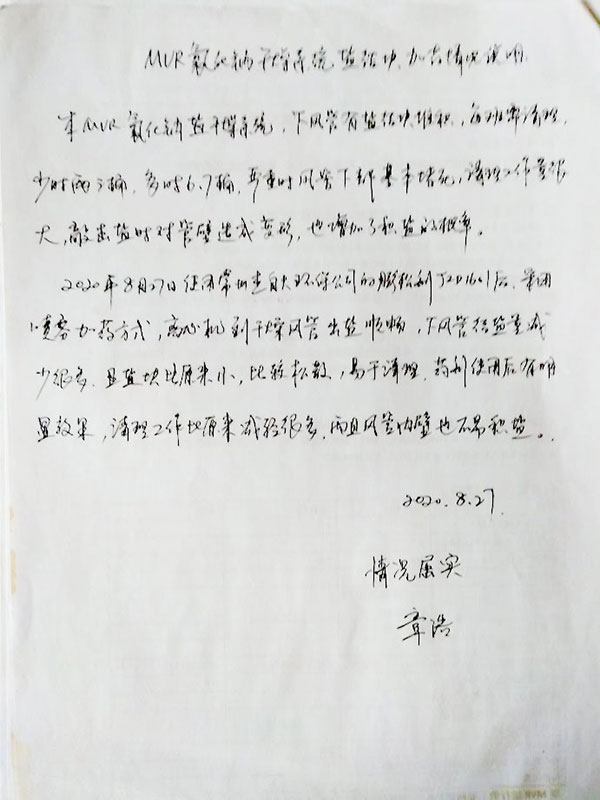 MVR氯化钠干燥系统盐结块加药情况说明
本MVR氯化钠盐干燥系统，下风管有盐结块堆积，每班需清理，
少时两三桶，多时6.7桶，严重时风管下部基本堵死，清理工作量很
大，敲击盐时对管壁造成变形，也增加了积盐的概率。
2020年8月27日使用常州 环保公司的 松剂 后，采用
喷雾加药方式，离心机到干燥风管出盐顺畅，下风管结盐量减
少很多，且盐块比原来小，比较松散，易于清理，药剂使用后有明
显效果，清理工作比原来减轻很多，而且风管内壁也不易积盐。
2020.8.27
情况属实
章浩